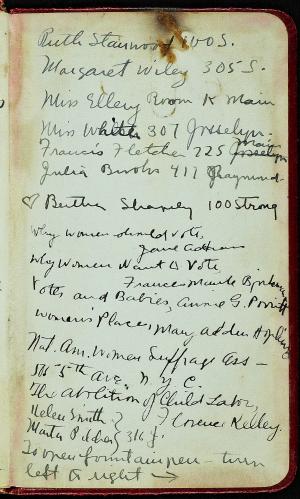 Ruth Stanwood 100 S.
Margaret Wiley 305 S.
Miss Ellery Room K Main
Miss White 307 Josselyn.
Francis Fletcher 225 Main
Josselyn
Julia 417 Raymond.
♡ Bertha Shanley 100 Strong
Why women should vote,
Jane Addams
Why Women Want to Vote
Frances Maule
Votes and Babies, Annie G. Porritt
Women's Place, Mary Alden Hopkins
Nat. Am. Women Suffrage Ass –
505 5th Ave., N.Y.C.
The Abolition of Child Labor,
Florence Kelley.
Helen Smith }
Pilcher } 316 J.
To open fountain pen – turn
left to right →